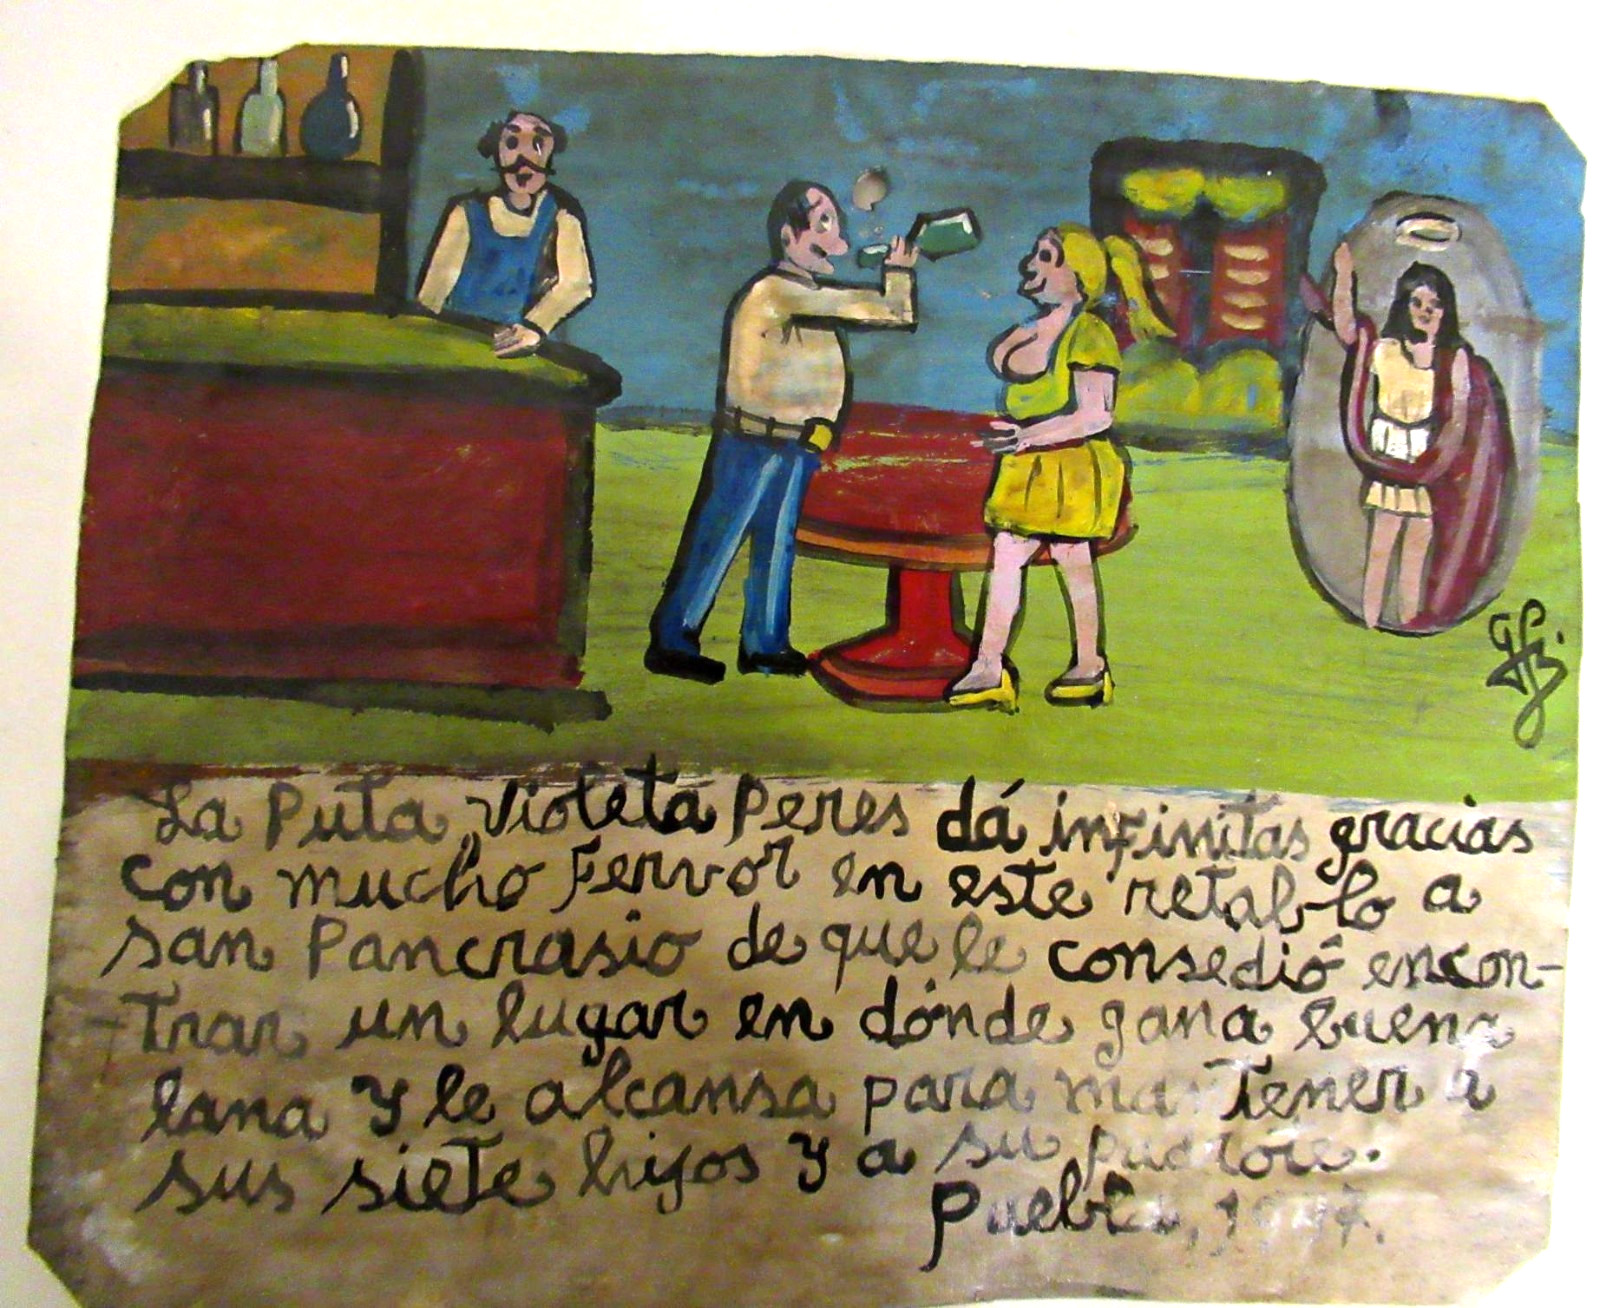 La Puta Violeta Peres dá infinitas gracias
con mucho Fervor en este retablo a
san Pancrasio de que le consedió encon-
trar un lugar en dónde gana buena
lana y le alcansa para mantener a
sus siete hijos y a su
Puebla,